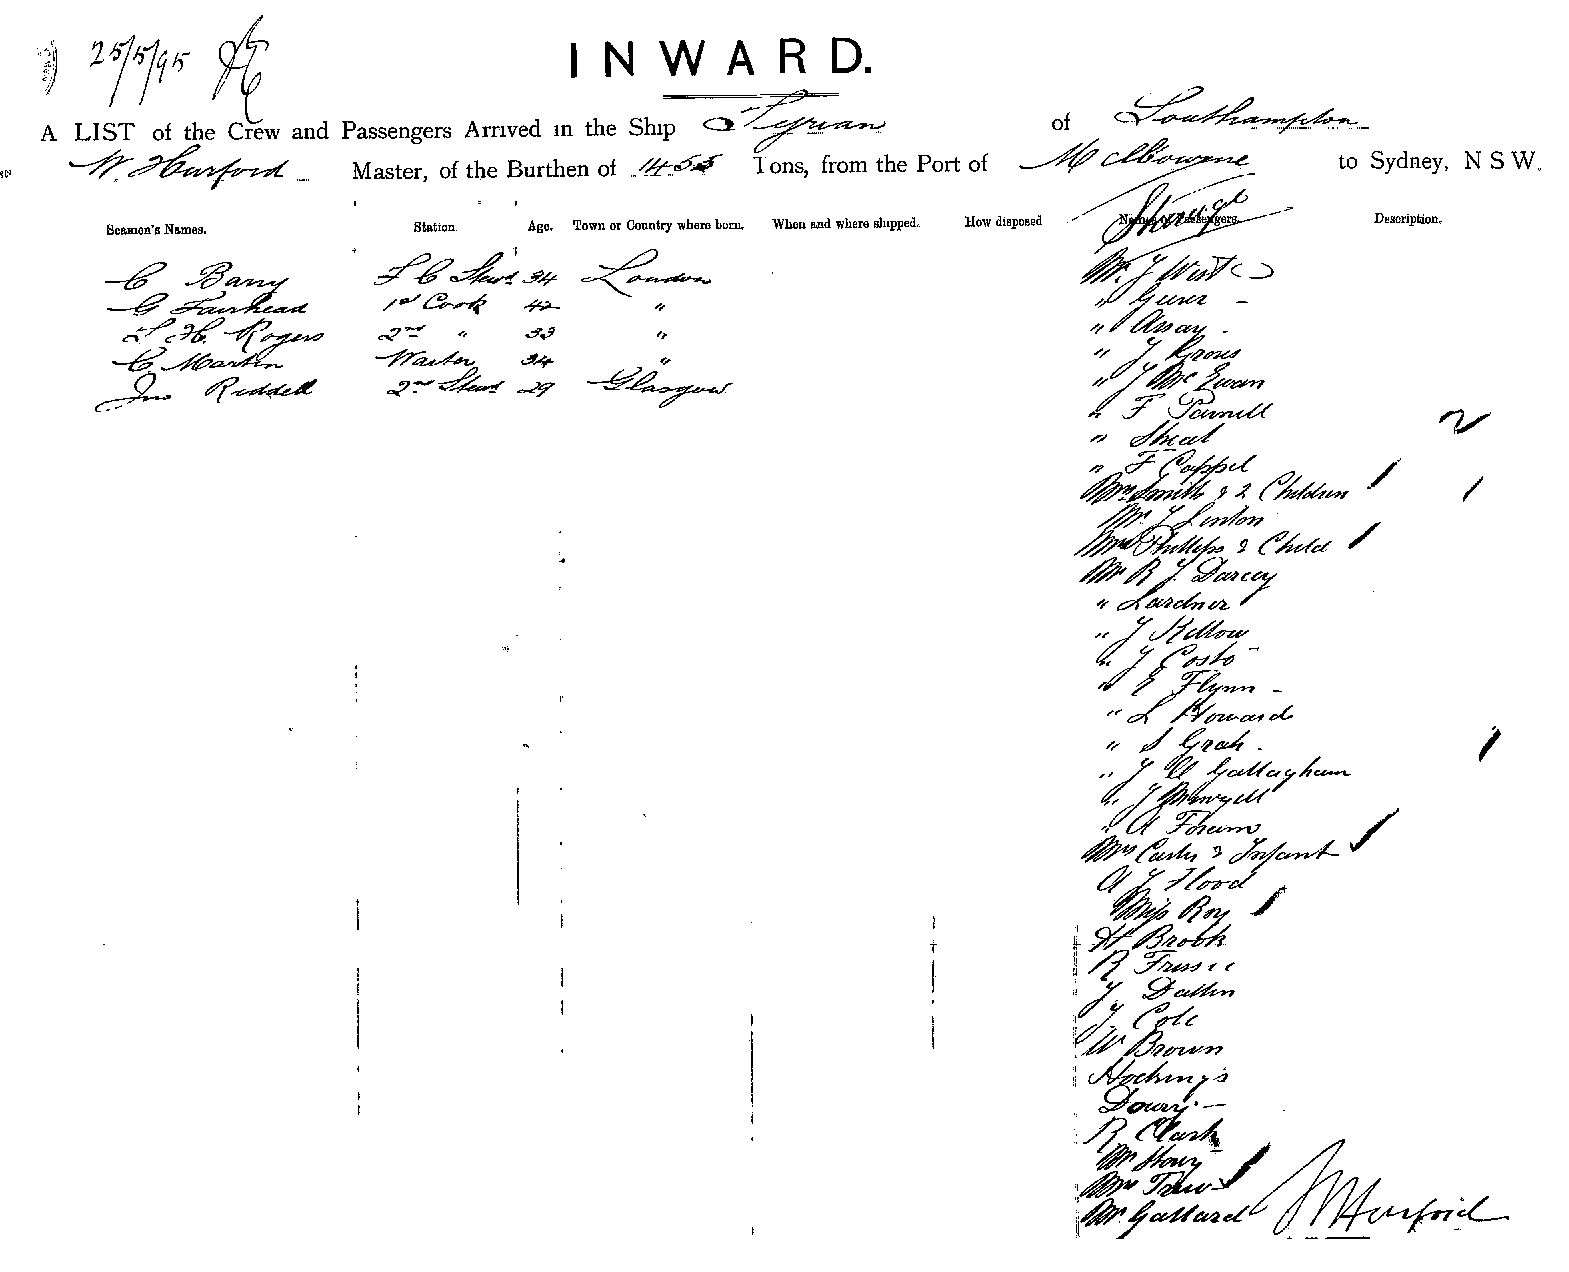 25/5/95
INWARD.
A LIST of the Crew and Passengers Arrived in the Ship Tyrian of Southampton
W. Hurford Master, of the Burthen of 1455 Tons, from the Port of Melbourne to Sydney, N S W.
Seamen's Names. Station. Age. Town or Country where born. When and where shipped. How disposed Names of Passengers. Description.
Steerage
C Barry F C Stewd 34 London
G Fairhead 1st Cook 42 "
S H. Rogers 2nd " 33 "
C. Martin Waiter 34 "
Jno Riddell 2nd Stewd 29 Glasgow
Mr. J West
"
"
" J
" J McEwan
" F Parnell
" Sheat
" F Coppel
Mrs Smith & 2 Children
Mr. J Linton
Mrs Phillips & Child
Mr R J. Darcey
" Lardner
" J Kellow
" J Costo
" E Flynn
" L Howard
" S Grah
" J Gallagham
" J
" A
Mrs Carter & Infant
A J Flood
Miss Roy
H Brook
R
J Dallin
J. Cole
W Brown
Hockings
R Clark
Mr
Mrs Trew
Mr. Gallard
W Hurford